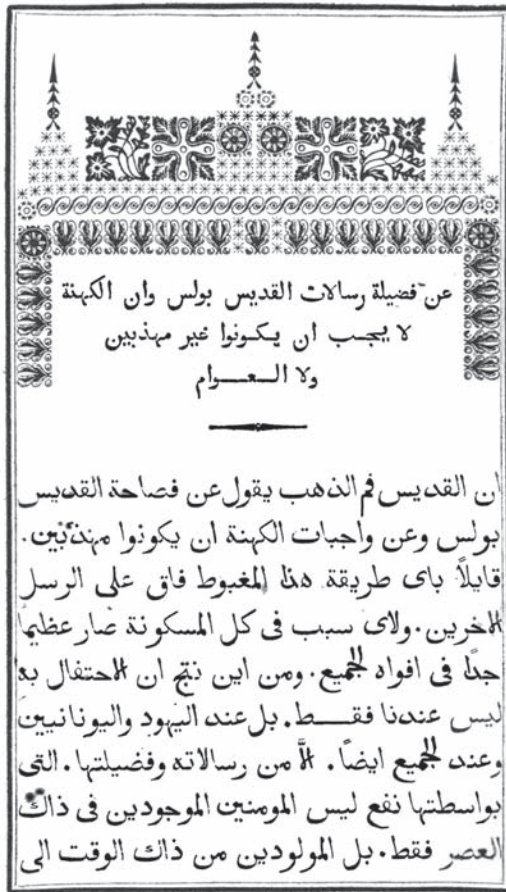 عن فضيلة رسالات القديس بولس وان الكهنة
لا يجـب ان يكـونوا غير مهذبين
ولا العـــوام
ان القديس فم الذهب يقول عن فصاحة القديس
بولس وعن واجبات الكهنة ان يكونوا مهذبين.
قايلاً باى طريقة هذا المغبوط فاق على الرسل
الاخرين. ولاى سبب فى كل المسكونة صار عظيمًا
جدًا فى افواه الجميع. ومن اين نتج ان الاحتفال به
ليس عندنا فقـــط. بل عند اليهود واليونانيين
وعند الجميع ايضاً. الاَّ من رسالاته وفضيلتها. التى
بواسطتها نفع ليس المومنين الموجودين فى ذاك
العصر فقط. بل المولودين من ذاك الوقت الى